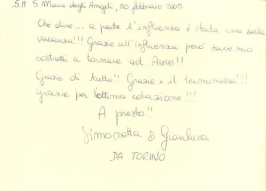 S.M S. Maria degli Angeli, 20 febbraio 2005
Che dire... a parte l'influenza è stata una bella
vacanza!!! Grazie all'influenza però saremo
costretti a tornare ad Assisi!!
Grazie di tutto!! Grazie x il termometro!!!
Grazie per l'ottima colazione!!!
A presto!!
Simonetta & Gianluca
DA TORINO